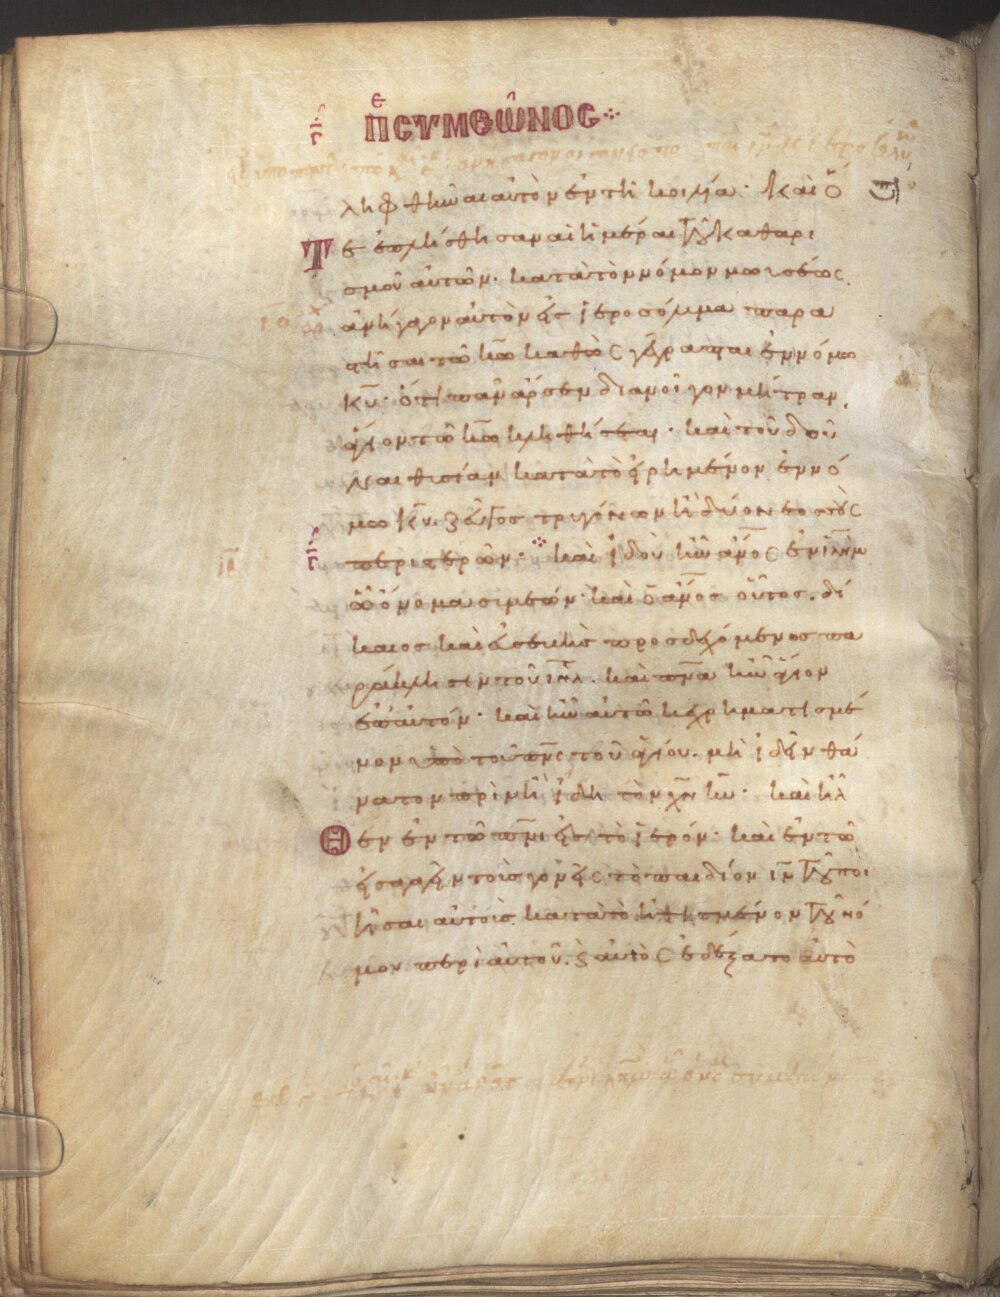 γ̅ πε συμεῶνος
ληφθῆναι αὐτὸν ἐν τῆ κοιλία· Καὶ ὅ
Τε ἐπλήσθησαν αἱ ἡμέραι τοῦ καθαρι
σμοῦ αὐτῶν· κατὰ τὸν νόμον μωυσέως.
ἀνήγαγον αὐτὸν εἰς ἱεροσόλυμα παρα
στῆσαι τῶ κ̅ω̅ καθὼς γέγραπται ἐν νόμω
κ̅υ̅· ὅτι πᾶν ἄρσεν διανοῖγον μήτραν,
ἅγιον τῶ κ̅ω̅ κληθήσεται· καὶ τοῦ δοῦ
ναι θυσίαν κατὰ τὸ εἰρημένον ἐν νό
μω κ̅υ̅. ζεῦγος τρυγόνων ἢ δύο νεοσσοὺς
περιστερῶν· καὶ ἰδοὺ ἦν ἄν̅ο̅ς ἐν ἰ̅λ̅η̅μ
ὧ ὄνομα συμεών· καὶ ὁ ἄν̅ο̅ς οὗτος. δί
καιος καὶ εὐσεβὴς προσδεχόμενος πα
ράκλησιν τοῦ ἰ̅η̅λ̅. καὶ π̅ν̅α̅ ἦν ἅγιον
ἐπ' αὐτόν· καὶ ἦν αὐτῶ κεχρηματισμέ
νον ὑπὸ τοῦ π̅ν̅ς̅ τοῦ ἁγίου. μὴ ἰδεῖν θά
νατον πρὶν ἢ ἴδη τὸν χ̅ν̅ κ̅υ̅· καὶ ἦλ
Θεν ἐν τῶ π̅ν̅ι̅ εἰς τὸ ἱερόν· καὶ ἐν τῶ
εἰσαγαγεῖν τοὺς γονεῖς τὸ παιδίον ἰ̅ν̅ τοῦ ποι
ῆσαι αὐτοὺς κατὰ τὸ εἰθισμένον τοῦ νό
μου περὶ αὐτοῦ. ϗ αὐτὸς ἐδέξατο αὐτὸ